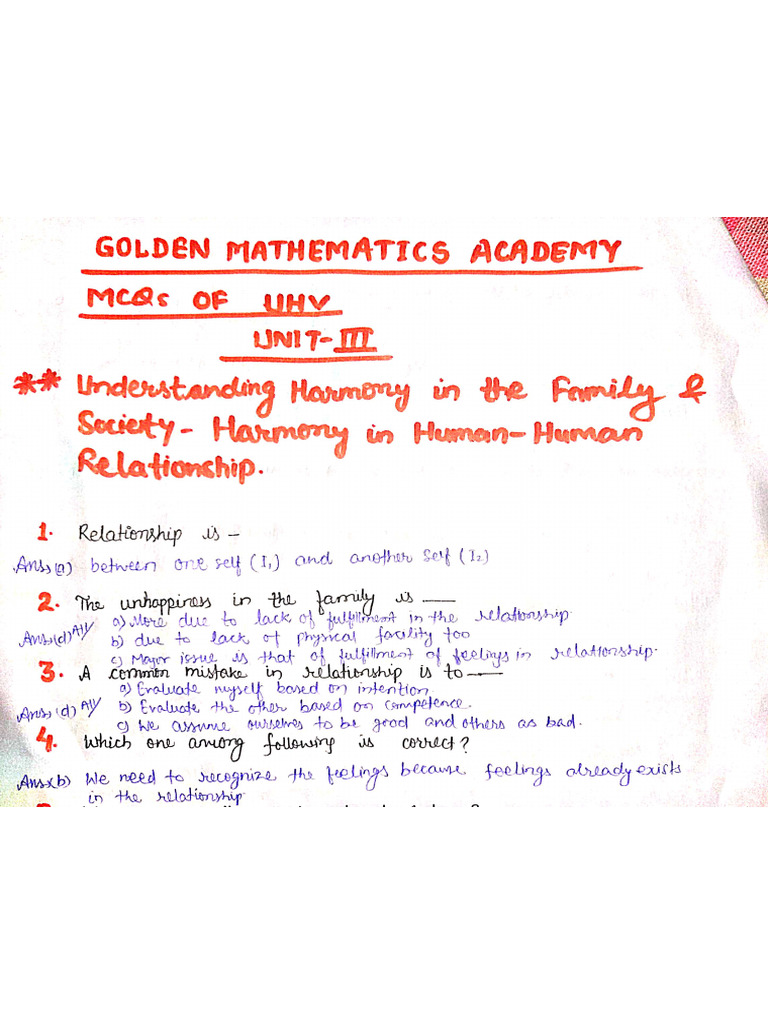 GOLDEN MATHEMATICS ACADEMY
MCQs OF UHV
UNIT-III
** Understanding Harmony in the Family &
Society - Harmony in Human-Human
Relationship.
1. Relationship is -
Ans(a) between one self (I1) and another self (I2)
2. The unhappiness in the family is ___
a) More due to lack of fulfillment in the relationship.
Ans(d) All b) due to lack of physical facility too
c) Major issue is that of fulfillment of feelings in relationship.
3. A common mistake in relationship is to ___
a) Evaluate myself based on intention.
Ans(d) All b) Evaluate the other based on competence.
c) We assume ourselves to be good and others as bad.
4. Which one among following is correct?
Ans(b) We need to recognize the feelings because feelings already exists
in the relationship